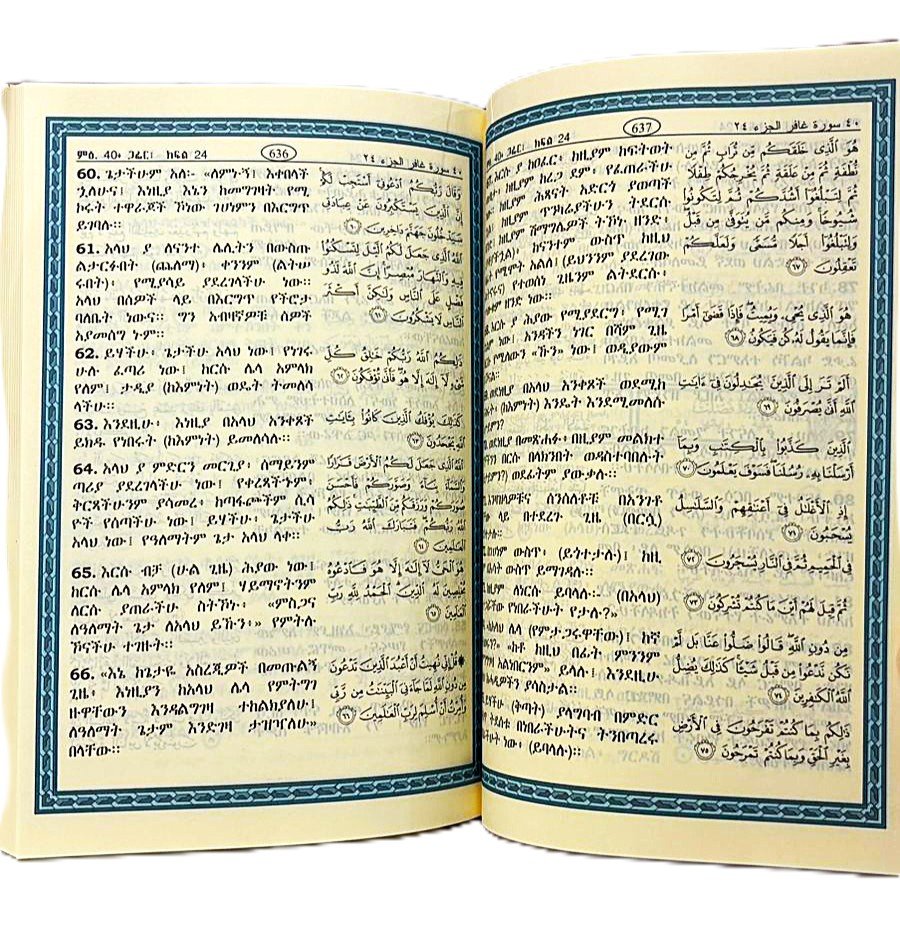 ምዕ. 40፥ ጋፊር፤ ክፍል 24
636
٤٠ سورة غافر الجزء ٢٤
60. ጌታችሁም አለ፡- «ለምኑኝ፤ እቀበላች
ኋለሁና፤ እነዚያ እኔን ከመግገዛት የሚ
ኮሩት ተዋራጆች ኾነው ገሀነምን በእርግጥ
ይገባሉ፡፡
61. አላህ ያ ለናንተ ሌሊትን በውስጡ
ልታርፉበት (ጨለማ)፥ ቀንንም (ልትሠ
ሩበት)፥ የሚያሳይ ያደረገላችሁ ነው፡፡
አላህ በሰዎች ላይ በእርግጥ የችሮታ
ባለቤት ነውና፡፡ ግን አብዛኛዎቹ ሰዎች
አያመሰግኑም፡፡
62. ይሃችሁ፥ ጌታችሁ አላህ ነው፤ የነገሩ
ሁሉ ፈጣሪ ነው፤ ከርሱ ሌላ አምላክ
የለም፤ ታዲያ (ከእምነት) ወዴት ትመለሳ
ላችሁ፡፡
63. እንደዚሁ፥ እነዚያ በአላህ አንቀጾች
ይክዱ የነበሩት (ከእምነት) ይመለሳሉ፡፡
64. አላህ ያ ምድርን መርጊያ፥ ሰማይንም
ጣሪያ ያደረገላችሁ ነው፤ የቀረጻችኁም፥
ቅርጻችሁንም ያሳመረ፥ ከጣፋጮችም ሲሳ
ዮች የሰጣችሁ ነው፤ ይሃችሁ፥ ጌታችሁ
አላህ ነው፤ የዓለማትም ጌታ አላህ ላቀ፡፡
65. እርሱ ብቻ (ሁል ጊዜ) ሕያው ነው፤
ከርሱ ሌላ አምላክ የለም፤ ሃይማኖትንም
ለርሱ ያጠራችሁ ስትኾኑ፥ «ምስጋና
ለዓለማት ጌታ ለአላህ ይኹን፥» የምትሉ
ኾናችሁ ተገዙት፡፡
66. «እኔ ከጌታዬ አስረጂዎች በመጡልኝ
ጊዜ፥ እነዚያን ከአላህ ሌላ የምትግገ
ዙዋቸውን እንዳልግገዛ ተከልክያለሁ፤
ለዓለማት ጌታም እንድገዛ ታዝዣለሁ»
በላቸው፡፡
وَقَالَ رَبُّكُمُ ادْعُونِي أَسْتَجِبْ لَكُمْ
إِنَّ الَّذِينَ يَسْتَكْبِرُونَ عَنْ عِبَادَتِي
سَيَدْخُلُونَ جَهَنَّمَ دَاخِرِينَ ٦٠
اللَّهُ الَّذِي جَعَلَ لَكُمُ اللَّيْلَ لِتَسْكُنُوا
فِيهِ وَالنَّهَارَ مُبْصِرًا إِنَّ اللَّهَ لَذُو
فَضْلٍ عَلَى النَّاسِ وَلَٰكِنَّ أَكْثَرَ
النَّاسِ لَا يَشْكُرُونَ ٦١
ذَٰلِكُمُ اللَّهُ رَبُّكُمْ خَالِقُ كُلِّ
شَيْءٍ لَا إِلَٰهَ إِلَّا هُوَ فَأَنَّىٰ تُؤْفَكُونَ ٦٢
كَذَٰلِكَ يُؤْفَكُ الَّذِينَ كَانُوا بِآيَاتِ
اللَّهِ يَجْحَدُونَ ٦٣
اللَّهُ الَّذِي جَعَلَ لَكُمُ الْأَرْضَ قَرَارًا
وَالسَّمَاءَ بِنَاءً وَصَوَّرَكُمْ فَأَحْسَنَ
صُوَرَكُمْ وَرَزَقَكُمْ مِنَ الطَّيِّبَاتِ ذَٰلِكُمُ
اللَّهُ رَبُّكُمْ فَتَبَارَكَ اللَّهُ رَبُّ
الْعَالَمِينَ ٦٤
هُوَ الْحَيُّ لَا إِلَٰهَ إِلَّا هُوَ فَادْعُوهُ
مُخْلِصِينَ لَهُ الدِّينَ الْحَمْدُ لِلَّهِ رَبِّ
الْعَالَمِينَ ٦٥
قُلْ إِنِّي نُهِيتُ أَنْ أَعْبُدَ الَّذِينَ تَدْعُونَ
مِنْ دُونِ اللَّهِ لَمَّا جَاءَنِيَ الْبَيِّنَاتُ مِنْ رَبِّي
وَأُمِرْتُ أَنْ أُسْلِمَ لِرَبِّ الْعَالَمِينَ ٦٦
ምዕ. 40፥ ጋፊር፤ ክፍል 24
637
٤٠ سورة غافر الجزء ٢٤
እርሱ ያ ከዐፈር፥ ከዚያም ከፍትወት
ከዚያም ከረጋ ደም፥ የፈጠራችሁ
ከዚያም ሕጻናት አድርጎ ያወጣችሁ
ጥንካሬያችሁን ትደርሱ
ከዚያም ሽማግሌዎች ትኾኑ ዘንድ፥
ከናንተም ውስጥ ከዚህ
የሚሞት አልለ፤ (ይህንንም ያደረገው
የተወሰነ ጊዜንም ልትደርሱ፥
ዘንድ ነው፡፡
እርሱ ያ ሕያው የሚያደርግ፥ የሚገ
ነው፤ አንዳችን ነገር በሻም ጊዜ
የሚለው «ኹን» ነው፤ ወዲያውም
ወደነዚያ በአላህ አንቀጾች ወደሚከ
(ከእምነት) እንዴት እንደሚመለሱ
በመጽሐፉ፥ በዚያም መልክተ
በርሱ በላክንበት ወደስተባበሉት
ወደፊትም ያውቃሉ፡፡
እንዛዝላዎቹና ሰንሰለቶቹ በአንገቶ
ላይ በተደረጉ ጊዜ (በርሷ)
ውስጥ፥ (ይጎተታሉ)፤ ከዚ
ሳት ውስጥ ይማገዳሉ፡፡
ለነርሱ ይባላሉ፡- (በአላህ)
የነበራችሁት የታሉ?»
ሌላ (የምታጋሩዋቸው)፤ ከኛ
«ከቶ ከዚህ በፊት ምንንም
አልነበርንም» ይላሉ፤ እንደዚሁ
ከሓዲዎችን ያሳስታል፡፡
(ቅጣት) ያላግባብ በምድር
ትደሰቱ በነበራችሁትና ትንበጣረሩ
ነው፥ (ይባላሉ)፡፡
هُوَ الَّذِي خَلَقَكُمْ مِنْ تُرَابٍ ثُمَّ مِنْ
نُطْفَةٍ ثُمَّ مِنْ عَلَقَةٍ ثُمَّ يُخْرِجُكُمْ طِفْلًا
ثُمَّ لِتَبْلُغُوا أَشُدَّكُمْ ثُمَّ لِتَكُونُوا
شُيُوخًا وَمِنْكُمْ مَنْ يُتَوَفَّىٰ مِنْ قَبْلُ
وَلِتَبْلُغُوا أَجَلًا مُسَمًّى وَلَعَلَّكُمْ
تَعْقِلُونَ ٦٧
هُوَ الَّذِي يُحْيِي وَيُمِيتُ فَإِذَا قَضَىٰ أَمْرًا
فَإِنَّمَا يَقُولُ لَهُ كُنْ فَيَكُونُ ٦٨
أَلَمْ تَرَ إِلَى الَّذِينَ يُجَادِلُونَ فِي آيَاتِ
اللَّهِ أَنَّىٰ يُصْرَفُونَ ٦٩
الَّذِينَ كَذَّبُوا بِالْكِتَابِ وَبِمَا
أَرْسَلْنَا بِهِ رُسُلَنَا فَسَوْفَ يَعْلَمُونَ ٧٠
إِذِ الْأَغْلَالُ فِي أَعْنَاقِهِمْ وَالسَّلَاسِلُ
يُسْحَبُونَ ٧١
فِي الْحَمِيمِ ثُمَّ فِي النَّارِ يُسْجَرُونَ ٧٢
ثُمَّ قِيلَ لَهُمْ أَيْنَ مَا كُنْتُمْ تُشْرِكُونَ ٧٣
مِنْ دُونِ اللَّهِ قَالُوا ضَلُّوا عَنَّا بَلْ لَمْ
نَكُنْ نَدْعُو مِنْ قَبْلُ شَيْئًا كَذَٰلِكَ يُضِلُّ
اللَّهُ الْكَافِرِينَ ٧٤
ذَٰلِكُمْ بِمَا كُنْتُمْ تَفْرَحُونَ فِي الْأَرْضِ
بِغَيْرِ الْحَقِّ وَبِمَا كُنْتُمْ تَمْرَحُونَ ٧٥